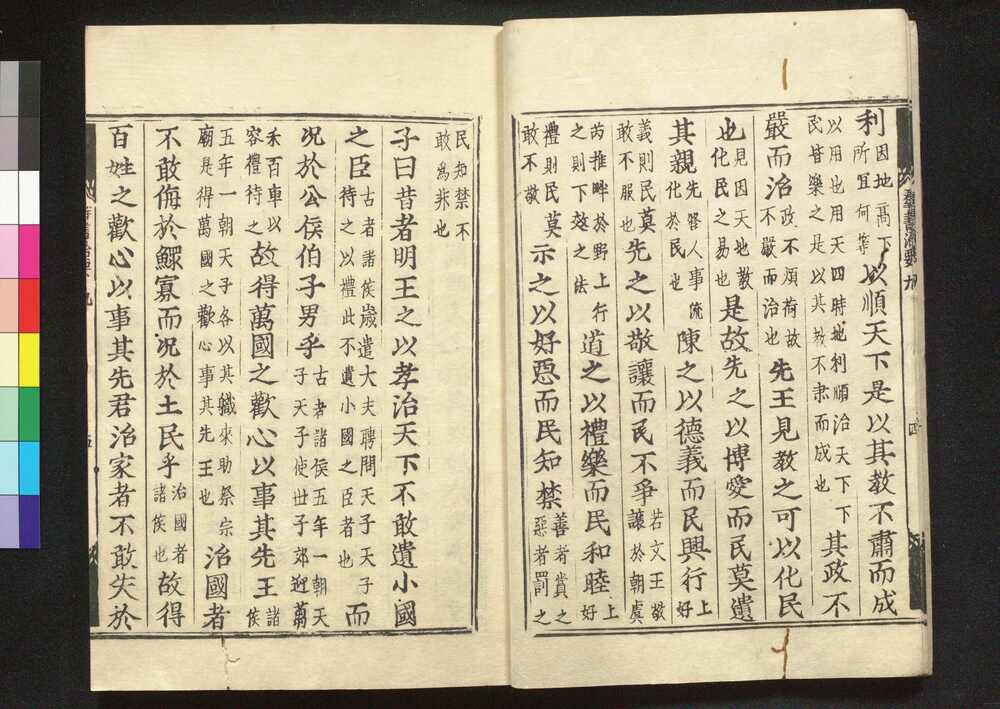 利因地高下所宜何等以順天下是以其教不肅而成
以用也用天四時地利順治天下下民皆樂之是以其教不肅而成也其政不
嚴而治政不煩苛故不嚴而治也先王見教之可以化民
也見因天地教化民之易也是故先之以博愛而民莫遺
其親先修人事流化於民也陳之以德義而民興行上好
義則民莫敢不服也先之以敬讓而民不爭若文王敬讓於朝虞
芮推畔於野上行之則下效之法道之以禮樂而民和睦上好
禮則民莫敢不敬示之以好惡而民知禁善者賞之惡者罰之
民知禁不敢爲非也
子曰昔者明王之以孝治天下不敢遺小國
之臣古者諸侯歲遣大夫聘問天子天子待之以禮此不遺小國之臣者也而
况於公侯伯子男乎古者諸侯五年一朝天子天子使世子郊迎芻
禾百車以容禮待之故得萬國之歡心以事其先王諸侯
五年一朝天子各以其職來助祭宗廟是得萬國之歡心事其先王也治國者
不敢侮於鰥寡而况於士民乎治國者諸侯也故得
百姓之歡心以事其先君治家者不敢失於
群書治要九
四
五